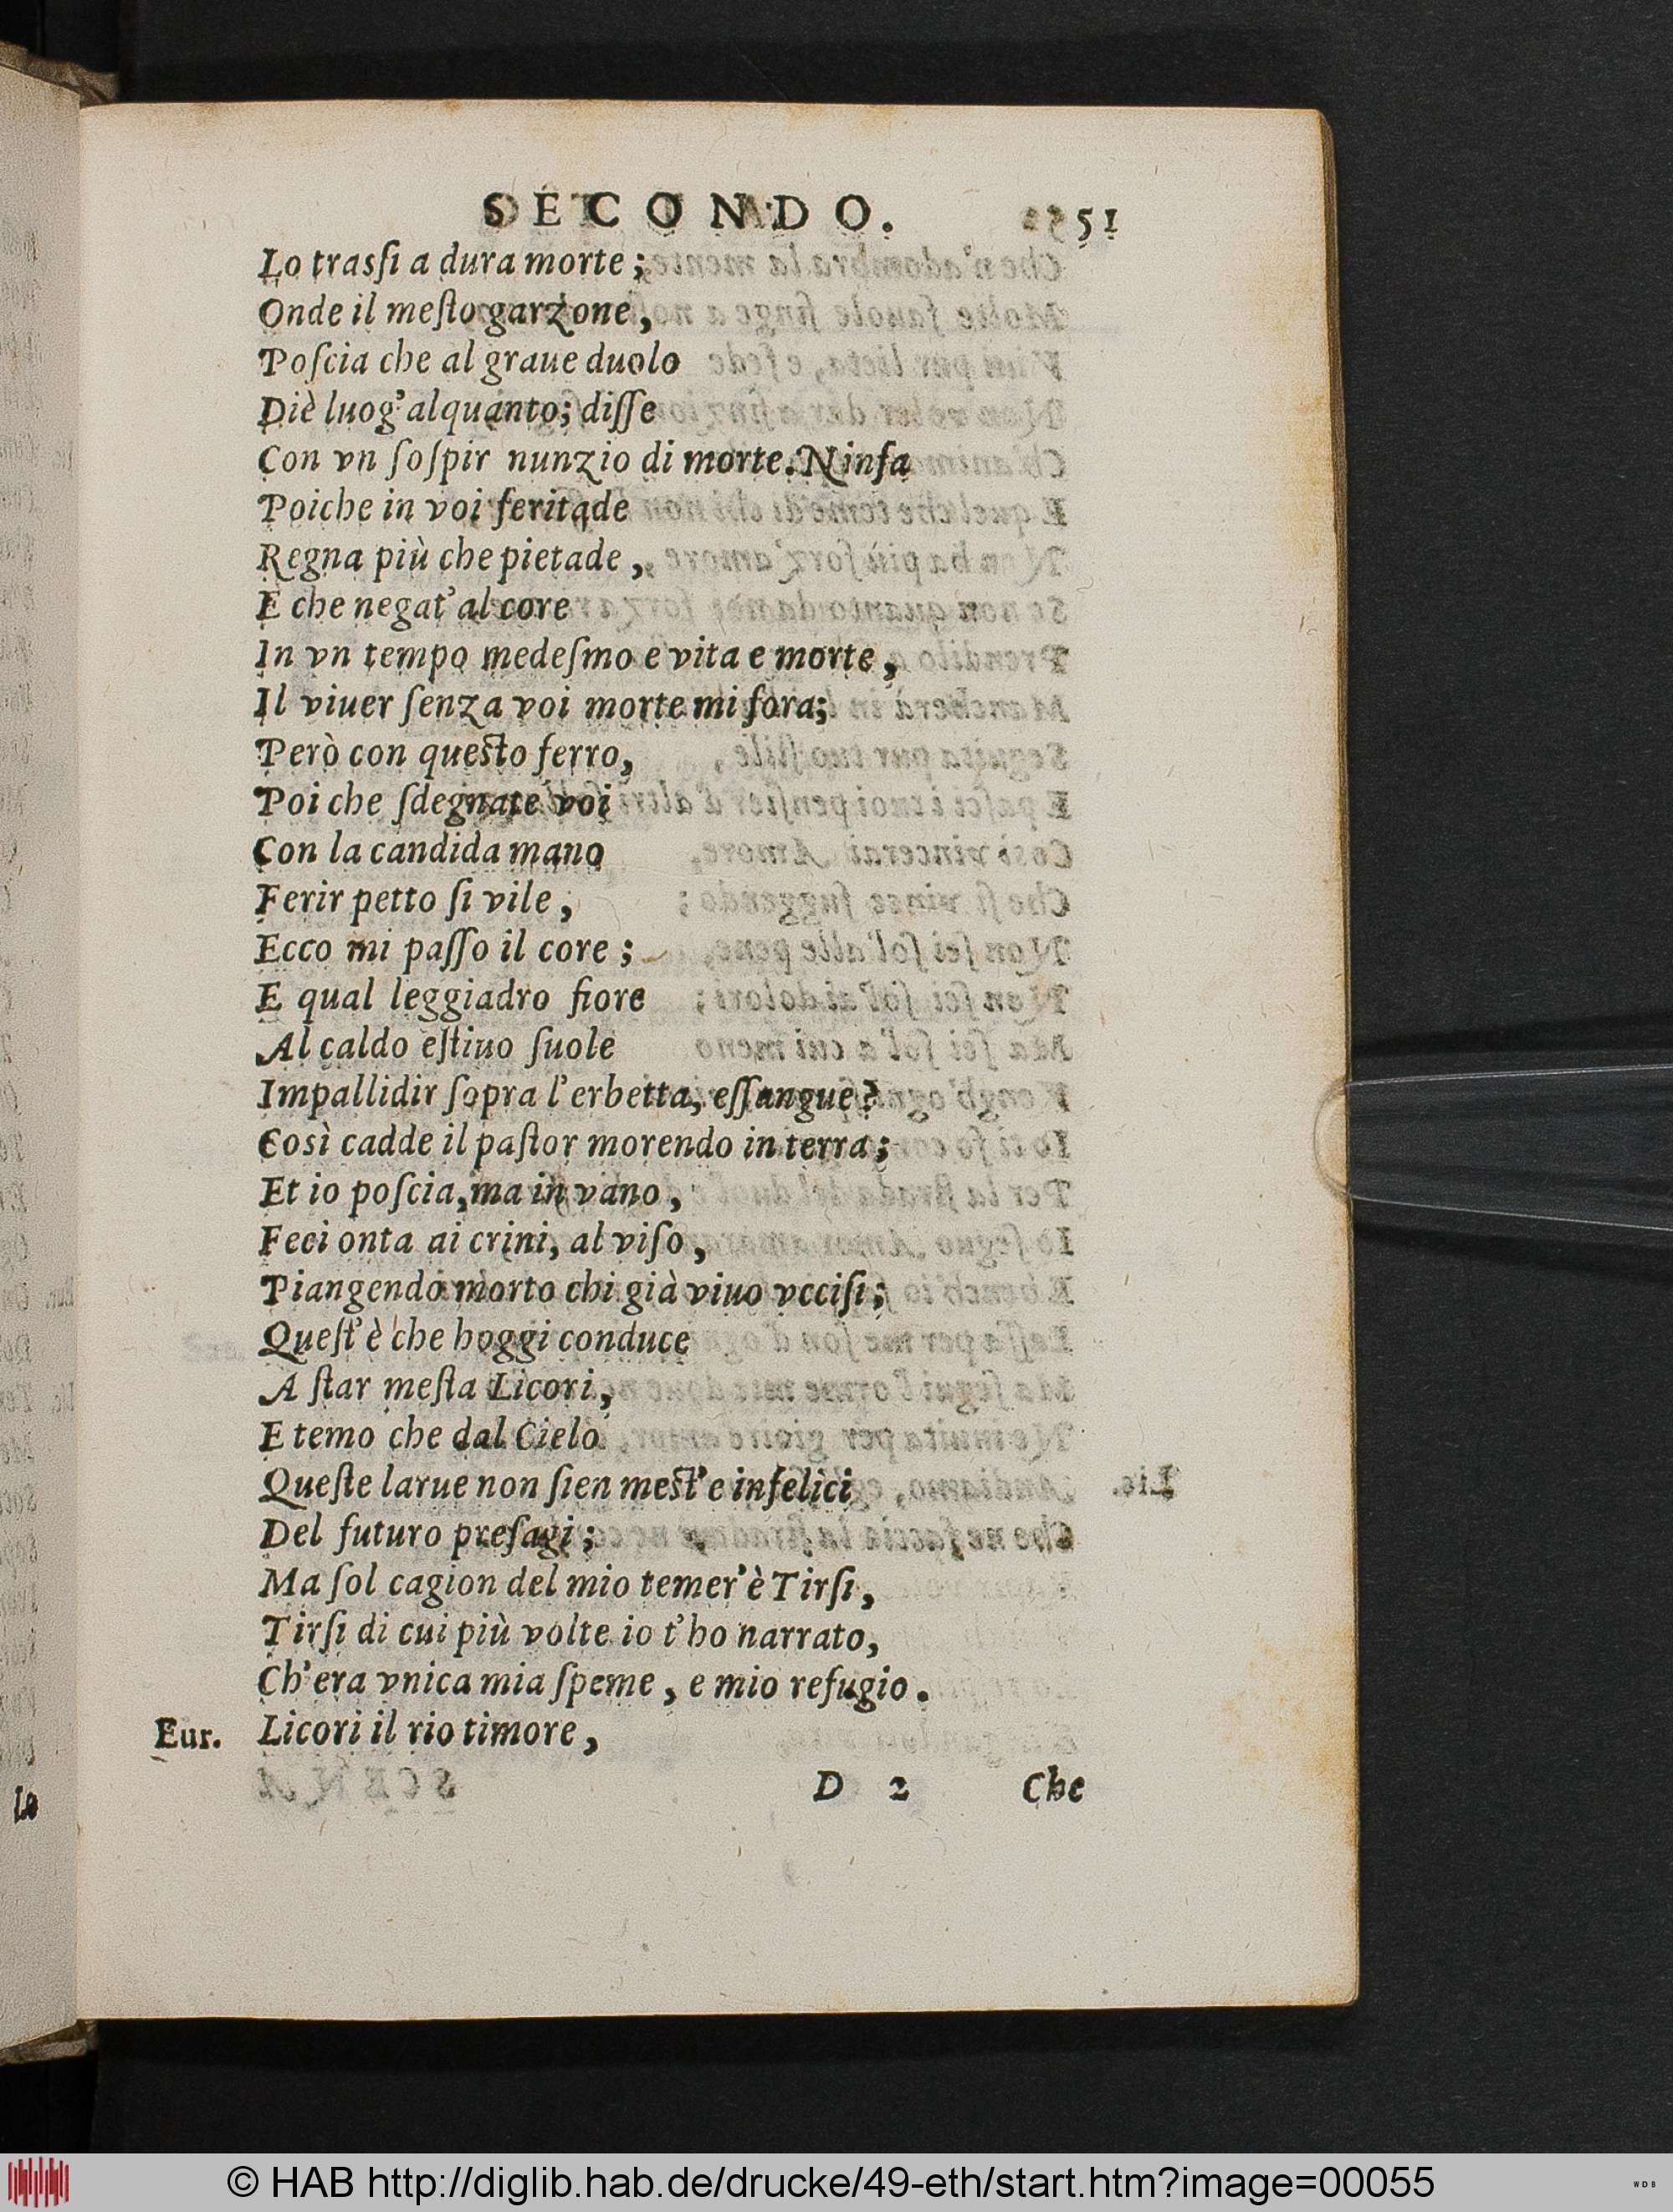 SECONDO. 51
Lo trasſi a dura morte;
Onde il meſto garzone,
Poſcia che al graue duolo
Diè luog'alquanto; diſſe
Con vn ſoſpir nunzio di morte. Ninfa
Poiche in voi feritade
Regna più che pietade,
E che negat'al core
In vn tempo medeſmo e vita e morte,
Il viuer ſenza voi morte mi fora;
Però con questo ferro,
Poi che ſdegnate voi
Con la candida mano
Ferir petto ſi vile,
Ecco mi paſſo il core;
E qual leggiadro fiore
Al caldo eſtiuo ſuole
Impallidir ſopra l'erbetta, eſſangue?
Così cadde il paſtor morendo in terra;
Et io poſcia, ma in vano,
Feci onta ai crini, al viſo,
Piangendo morto chi già viuo vcciſi;
Queſt'è che hoggi conduce
A ſtar meſta Licori,
E temo che dal Cielo
Queſte larue non ſien mest'e infelici
Del futuro preſagi;
Ma ſol cagion del mio temer'è Tirſi,
Tirſi di cui più volte io t'ho narrato,
Ch'era vnica mia ſpeme, e mio refugio.
Eur. Licori il rio timore,
D 2 Che
Lo
© HAB http://diglib.hab.de/drucke/49-eth/start.htm?image=00055
WDB